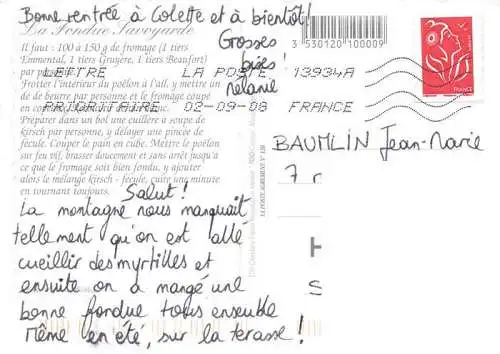 Bonne rentrée à Colette et à bientôt!
Grosses
bises!
Mélanie
La Fondue Savoyarde
Il faut : 100 à 150 g de fromage (1 tiers
Emmental, 1 tiers Gruyère, 1 tiers Beaufort)
par
Frotter l'intérieur du poêlon à l'ail, y mettre un
de de beurre par personne et le fromage coupé
en
Préparer dans un bol une cuillerée à soupe de
kirsch par personne, y délayer une pincée de
fécule. Couper le pain en cube. Mettre le poêlon
sur feu vif, brasser doucement et sans arrêt jusqu'à
ce que le fromage soit bien fondu, y ajouter
alors le mélange kirsch - fécule, cuire une minute
en tournant toujours.
3530120100009
LETTRE LA POSTE 13934A
PRIORITAIRE 02-09-08 FRANCE
BAUMLIN Jean-Marie
7 r
H
S
Salut!
La montagne nous manquait
tellement qu'on est allé
cueillir des myrtilles et
ensuite on a mangé une
bonne fondue tous ensemble
même en été, sur la terasse!